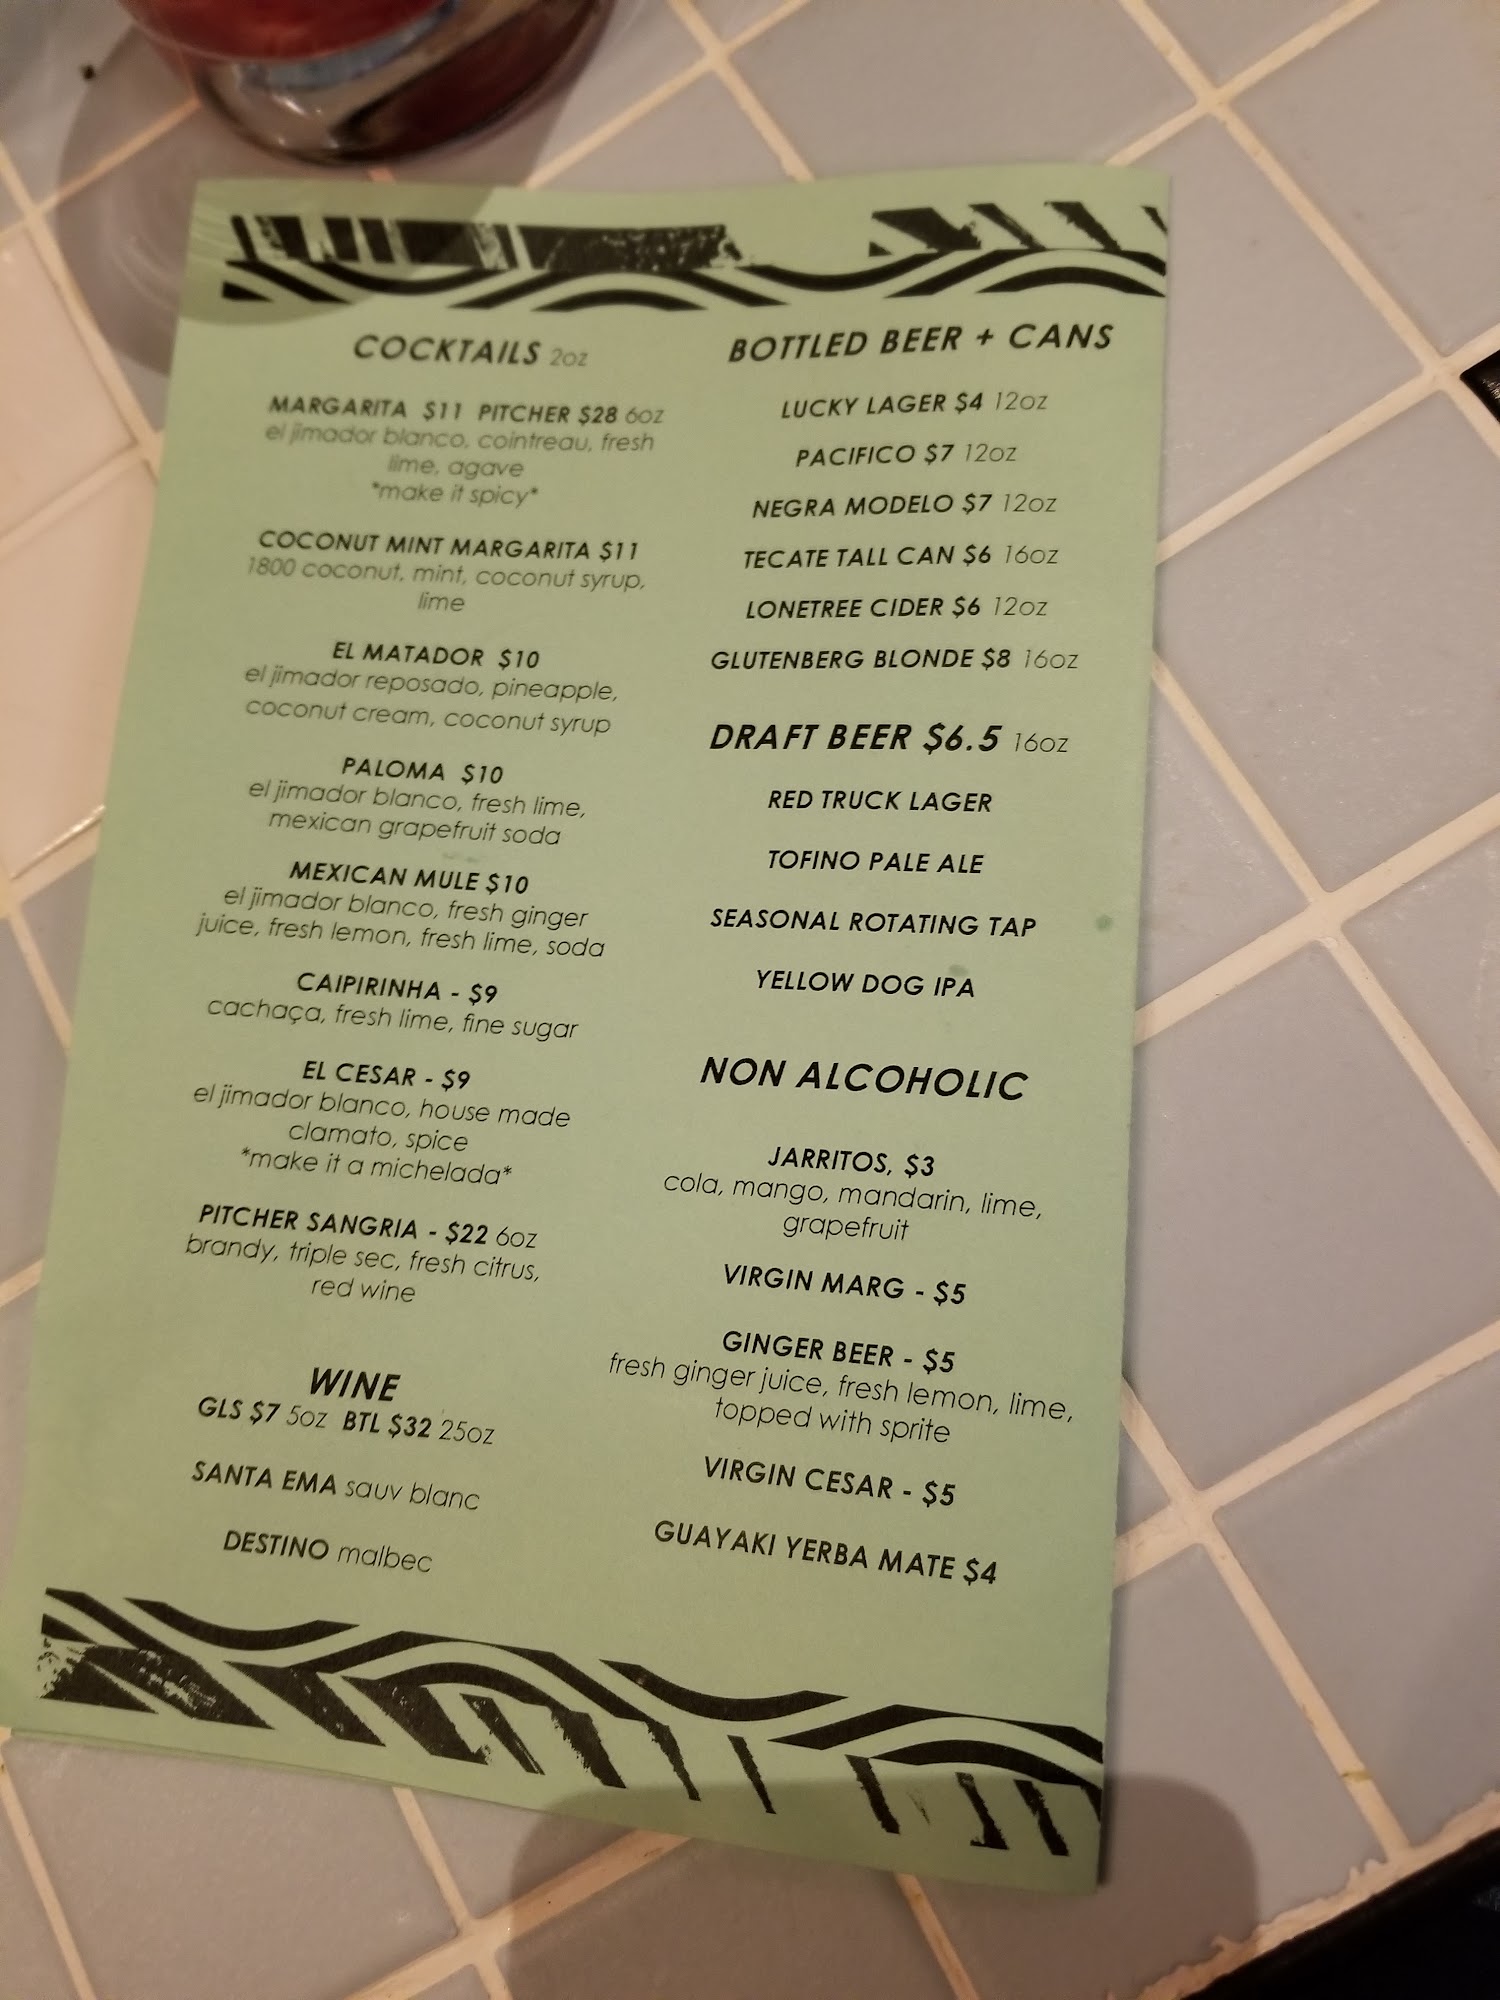 COCKTAILS 2oz
MARGARITA $11 PITCHER $28 6oz
el jimador blanco, cointreau, fresh
lime, agave
*make it spicy*
COCONUT MINT MARGARITA $11
1800 coconut, mint, coconut syrup,
lime
EL MATADOR $10
el jimador reposado, pineapple,
coconut cream, coconut syrup
PALOMA $10
el jimador blanco, fresh lime,
mexican grapefruit soda
MEXICAN MULE $10
el jimador blanco, fresh ginger
juice, fresh lemon, fresh lime, soda
CAIPIRINHA - $9
cachaça, fresh lime, fine sugar
EL CESAR - $9
el jimador blanco, house made
clamato, spice
*make it a michelada*
PITCHER SANGRIA - $22 6oz
brandy, triple sec, fresh citrus,
red wine
WINE
GLS $7 5oz BTL $32 25oz
SANTA EMA sauv blanc
DESTINO malbec
BOTTLED BEER + CANS
LUCKY LAGER $4 12oz
PACIFICO $7 12oz
NEGRA MODELO $7 12oz
TECATE TALL CAN $6 16oz
LONETREE CIDER $6 12oz
GLUTENBERG BLONDE $8 16oz
DRAFT BEER $6.5 16oz
RED TRUCK LAGER
TOFINO PALE ALE
SEASONAL ROTATING TAP
YELLOW DOG IPA
NON ALCOHOLIC
JARRITOS, $3
cola, mango, mandarin, lime,
grapefruit
VIRGIN MARG - $5
GINGER BEER - $5
fresh ginger juice, fresh lemon, lime,
topped with sprite
VIRGIN CESAR - $5
GUAYAKI YERBA MATE $4